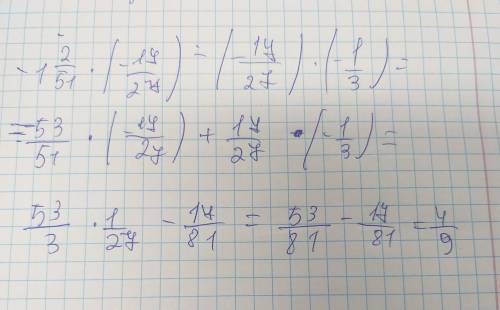 -1 2/51 · (-17/27) - (-17/27) · (-1/3) =
= -53/51 · (-17/27) + 17/27 · (-1/3) =
53/3 · 1/27 - 17/81 = 53/81 - 17/81 = 4/9